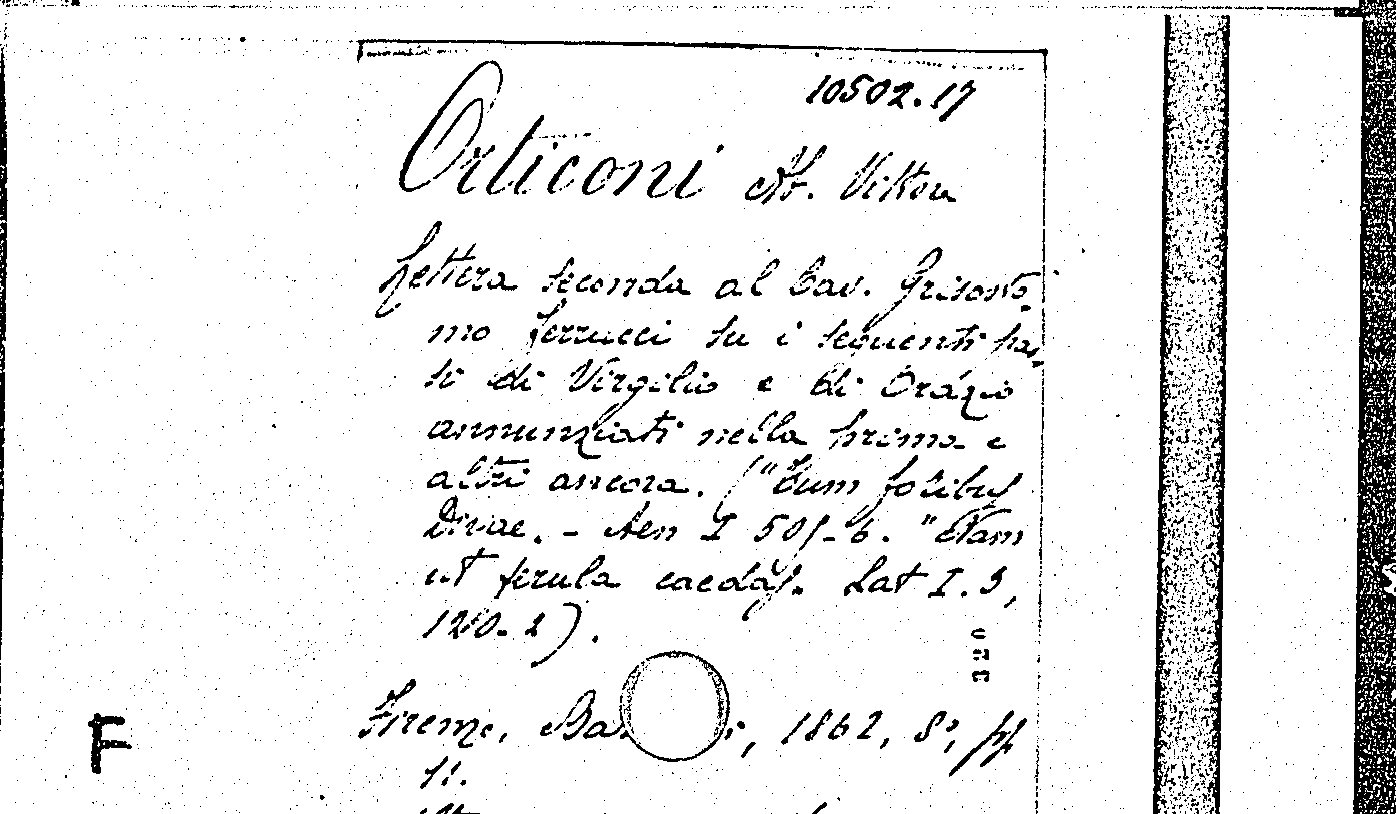 10502.17
Orticoni Ab. Vittore
Lettera seconda al Cav. Grisosto-
mo Ferrucci su i seguenti pas-
si di Virgilio e di Orazio
annunziati nella prima e
altri ancora. ("Tum foribus
Divae. - Aen I 505-6. "Nam
ut ferula caedas. Sat I. 3,
120-1).
320
Firenze, 1862, 8°, pp
11.
F